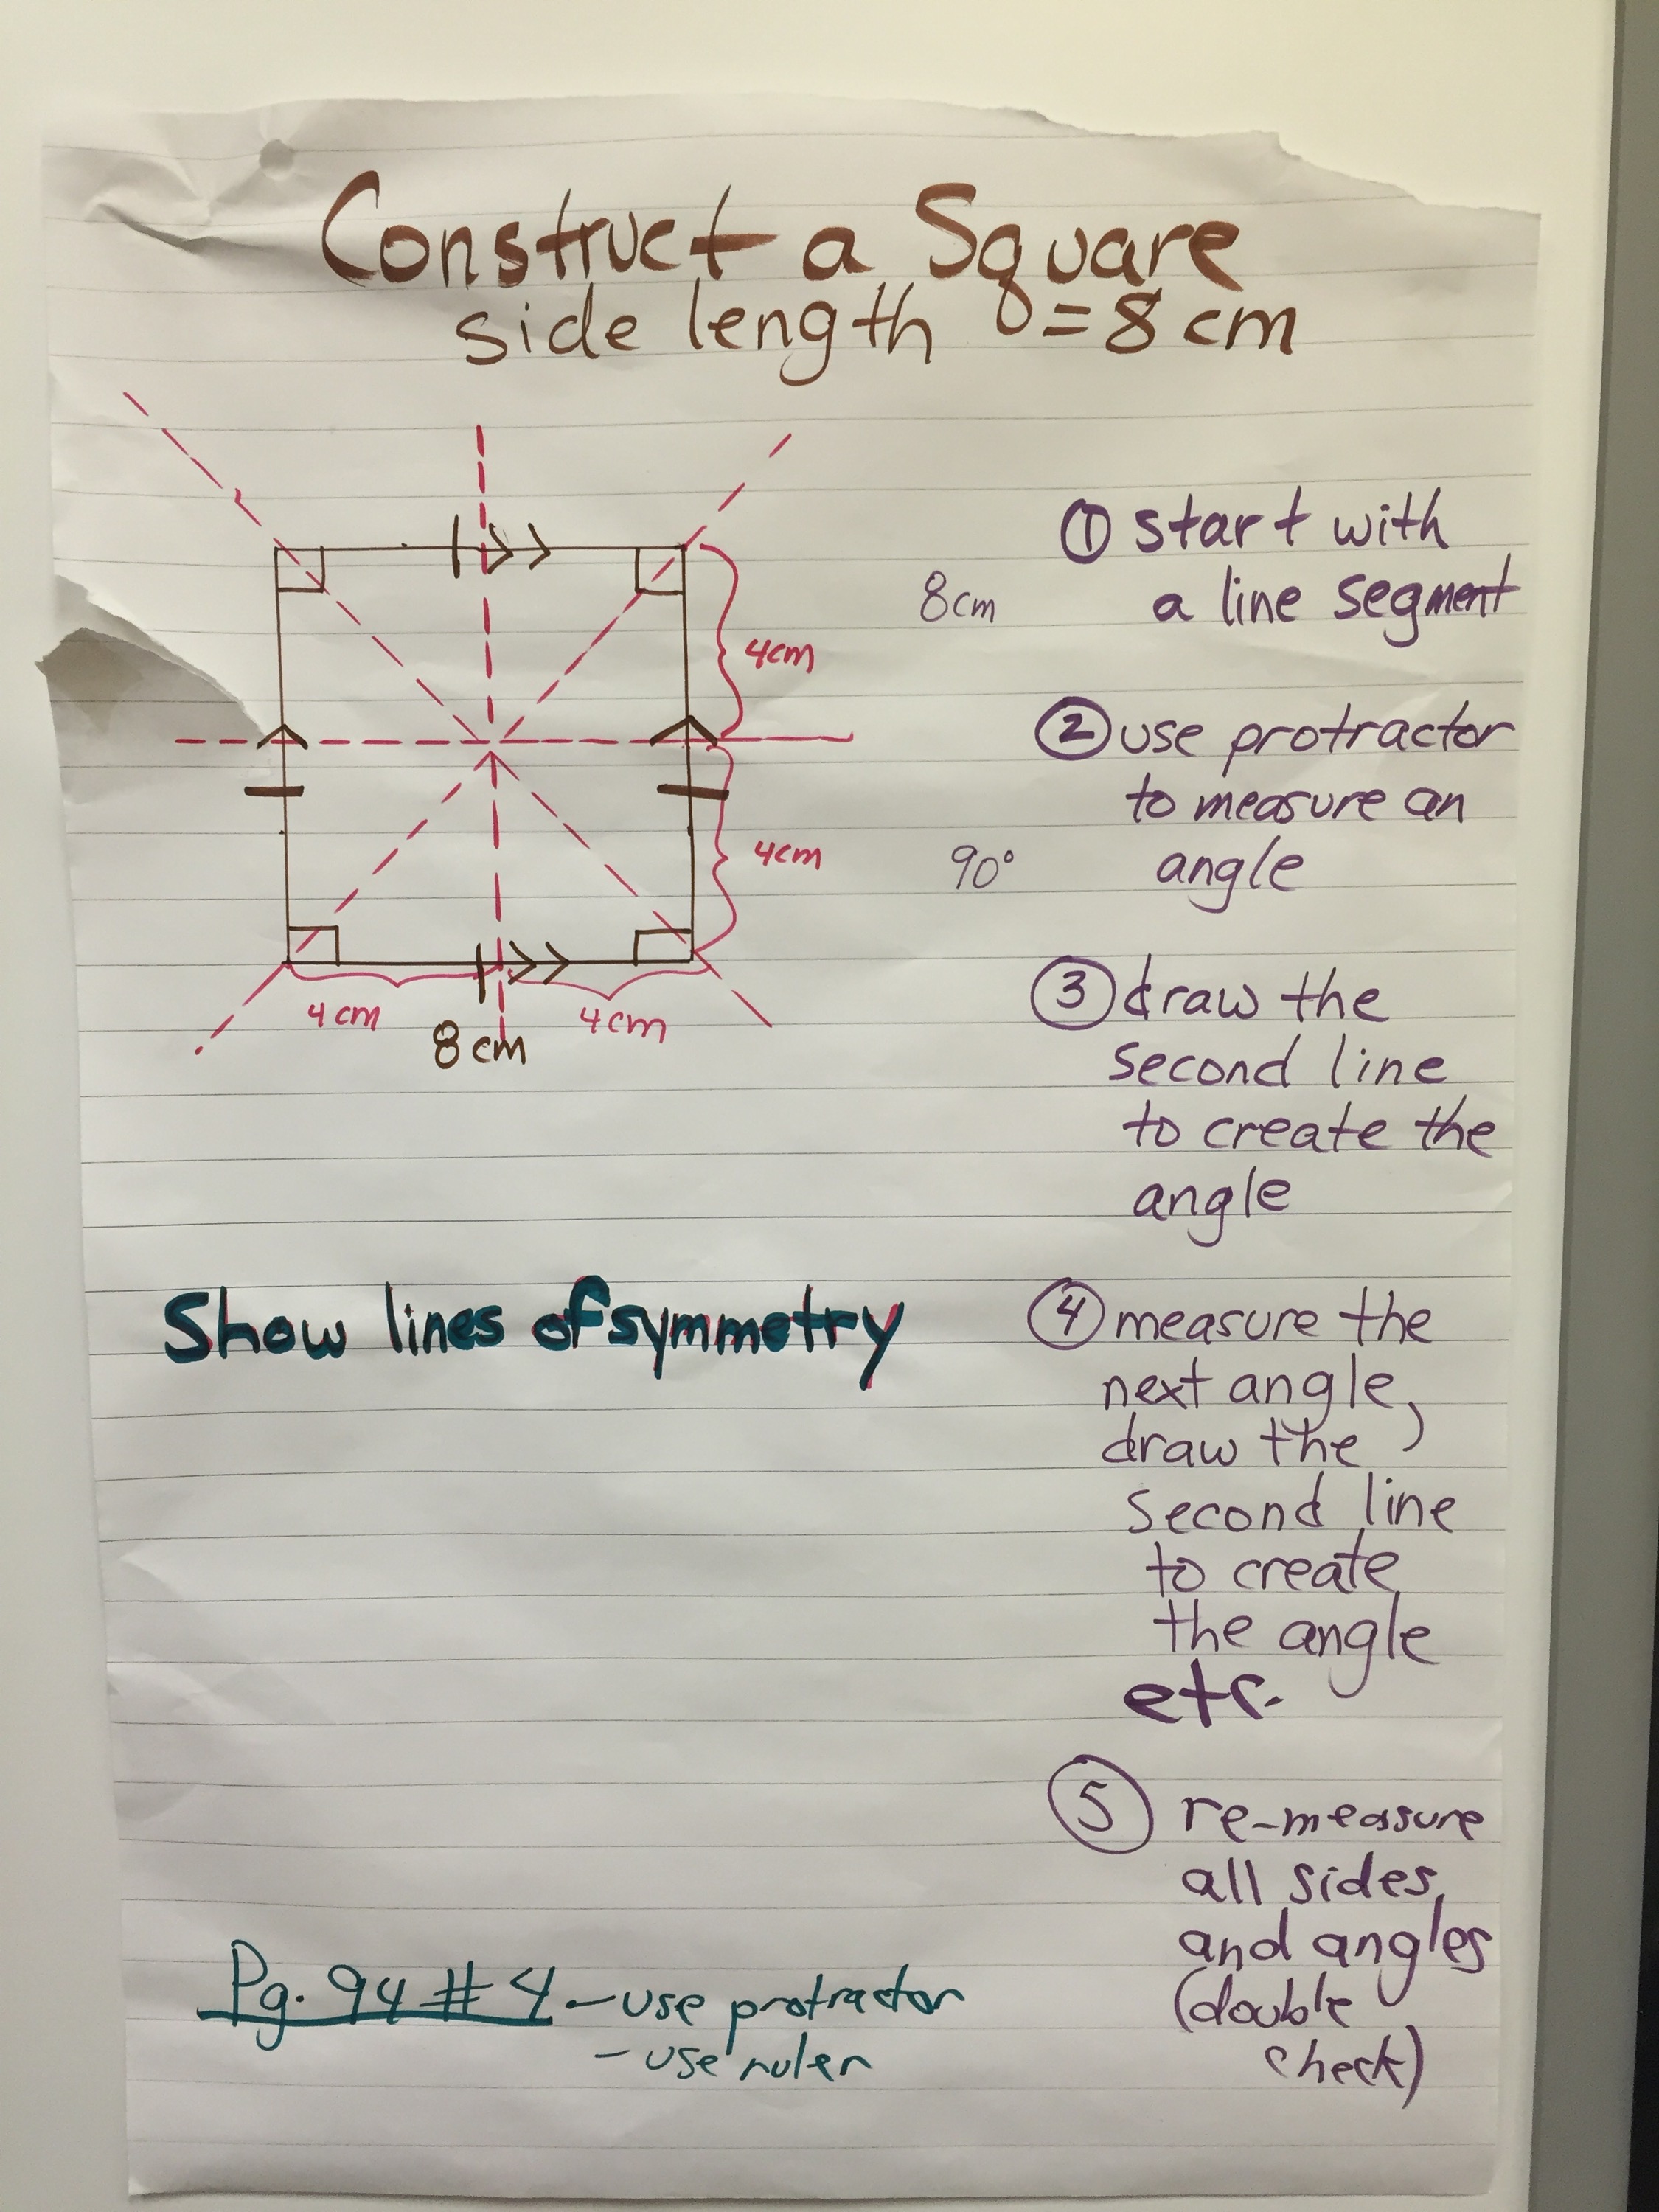 Construct a Square
side length = 8 cm
4cm
4cm
4cm
4cm
8 cm
8cm
① start with
a line segment
② use protractor
to measure an
90° angle
③ draw the
second line
to create the
angle
Show lines of symmetry
④ measure the
next angle,
draw the
second line
to create
the angle
etc.
⑤ re-measure
all sides
and angles
(double
check)
Pg. 94 # 4 - use protractor
- use ruler